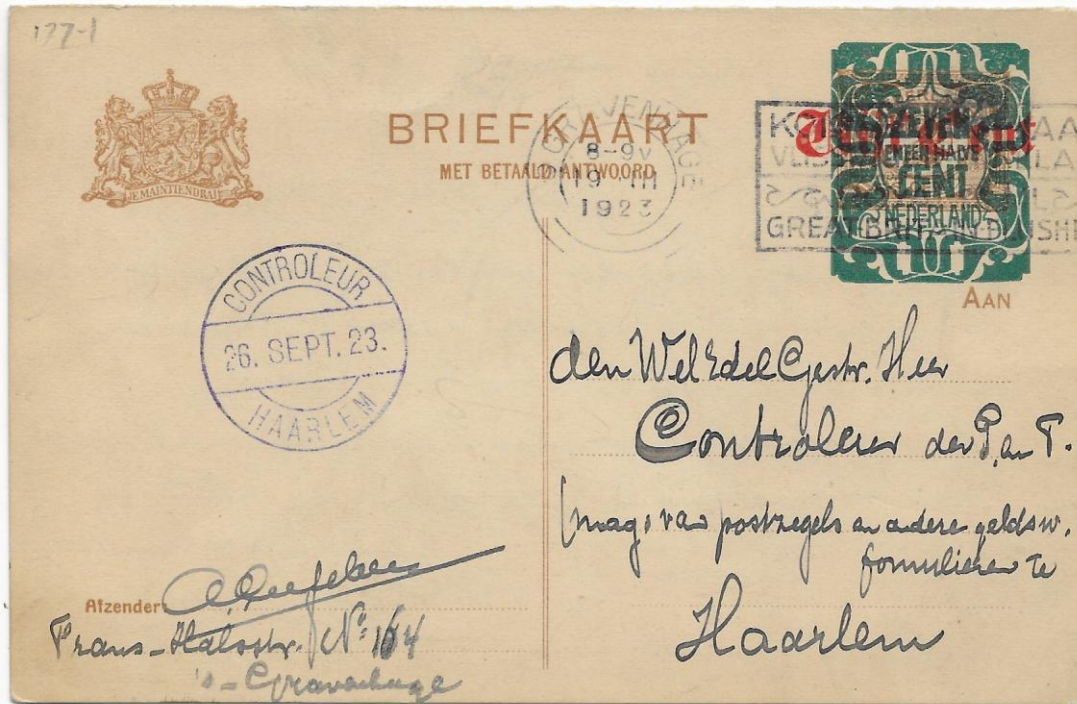 177-1
JE MAINTIENDRAI
BRIEFKAART
MET BETAALD ANTWOORD
8-9V
19 III
1923
VLIS
GREAT BRIT
ZEVEN
EN EEN HALVE
CENT
NEDERLAND
AAN
CONTROLEUR
26. SEPT. 23.
HAARLEM
den WelEdelGestr. Heer
Controleur der P. en T.
(mag. van postzegels en andere geldsw.
formulieren te
Haarlem
Afzender:
Frans-Halsstr. No 164
's-Gravenhage